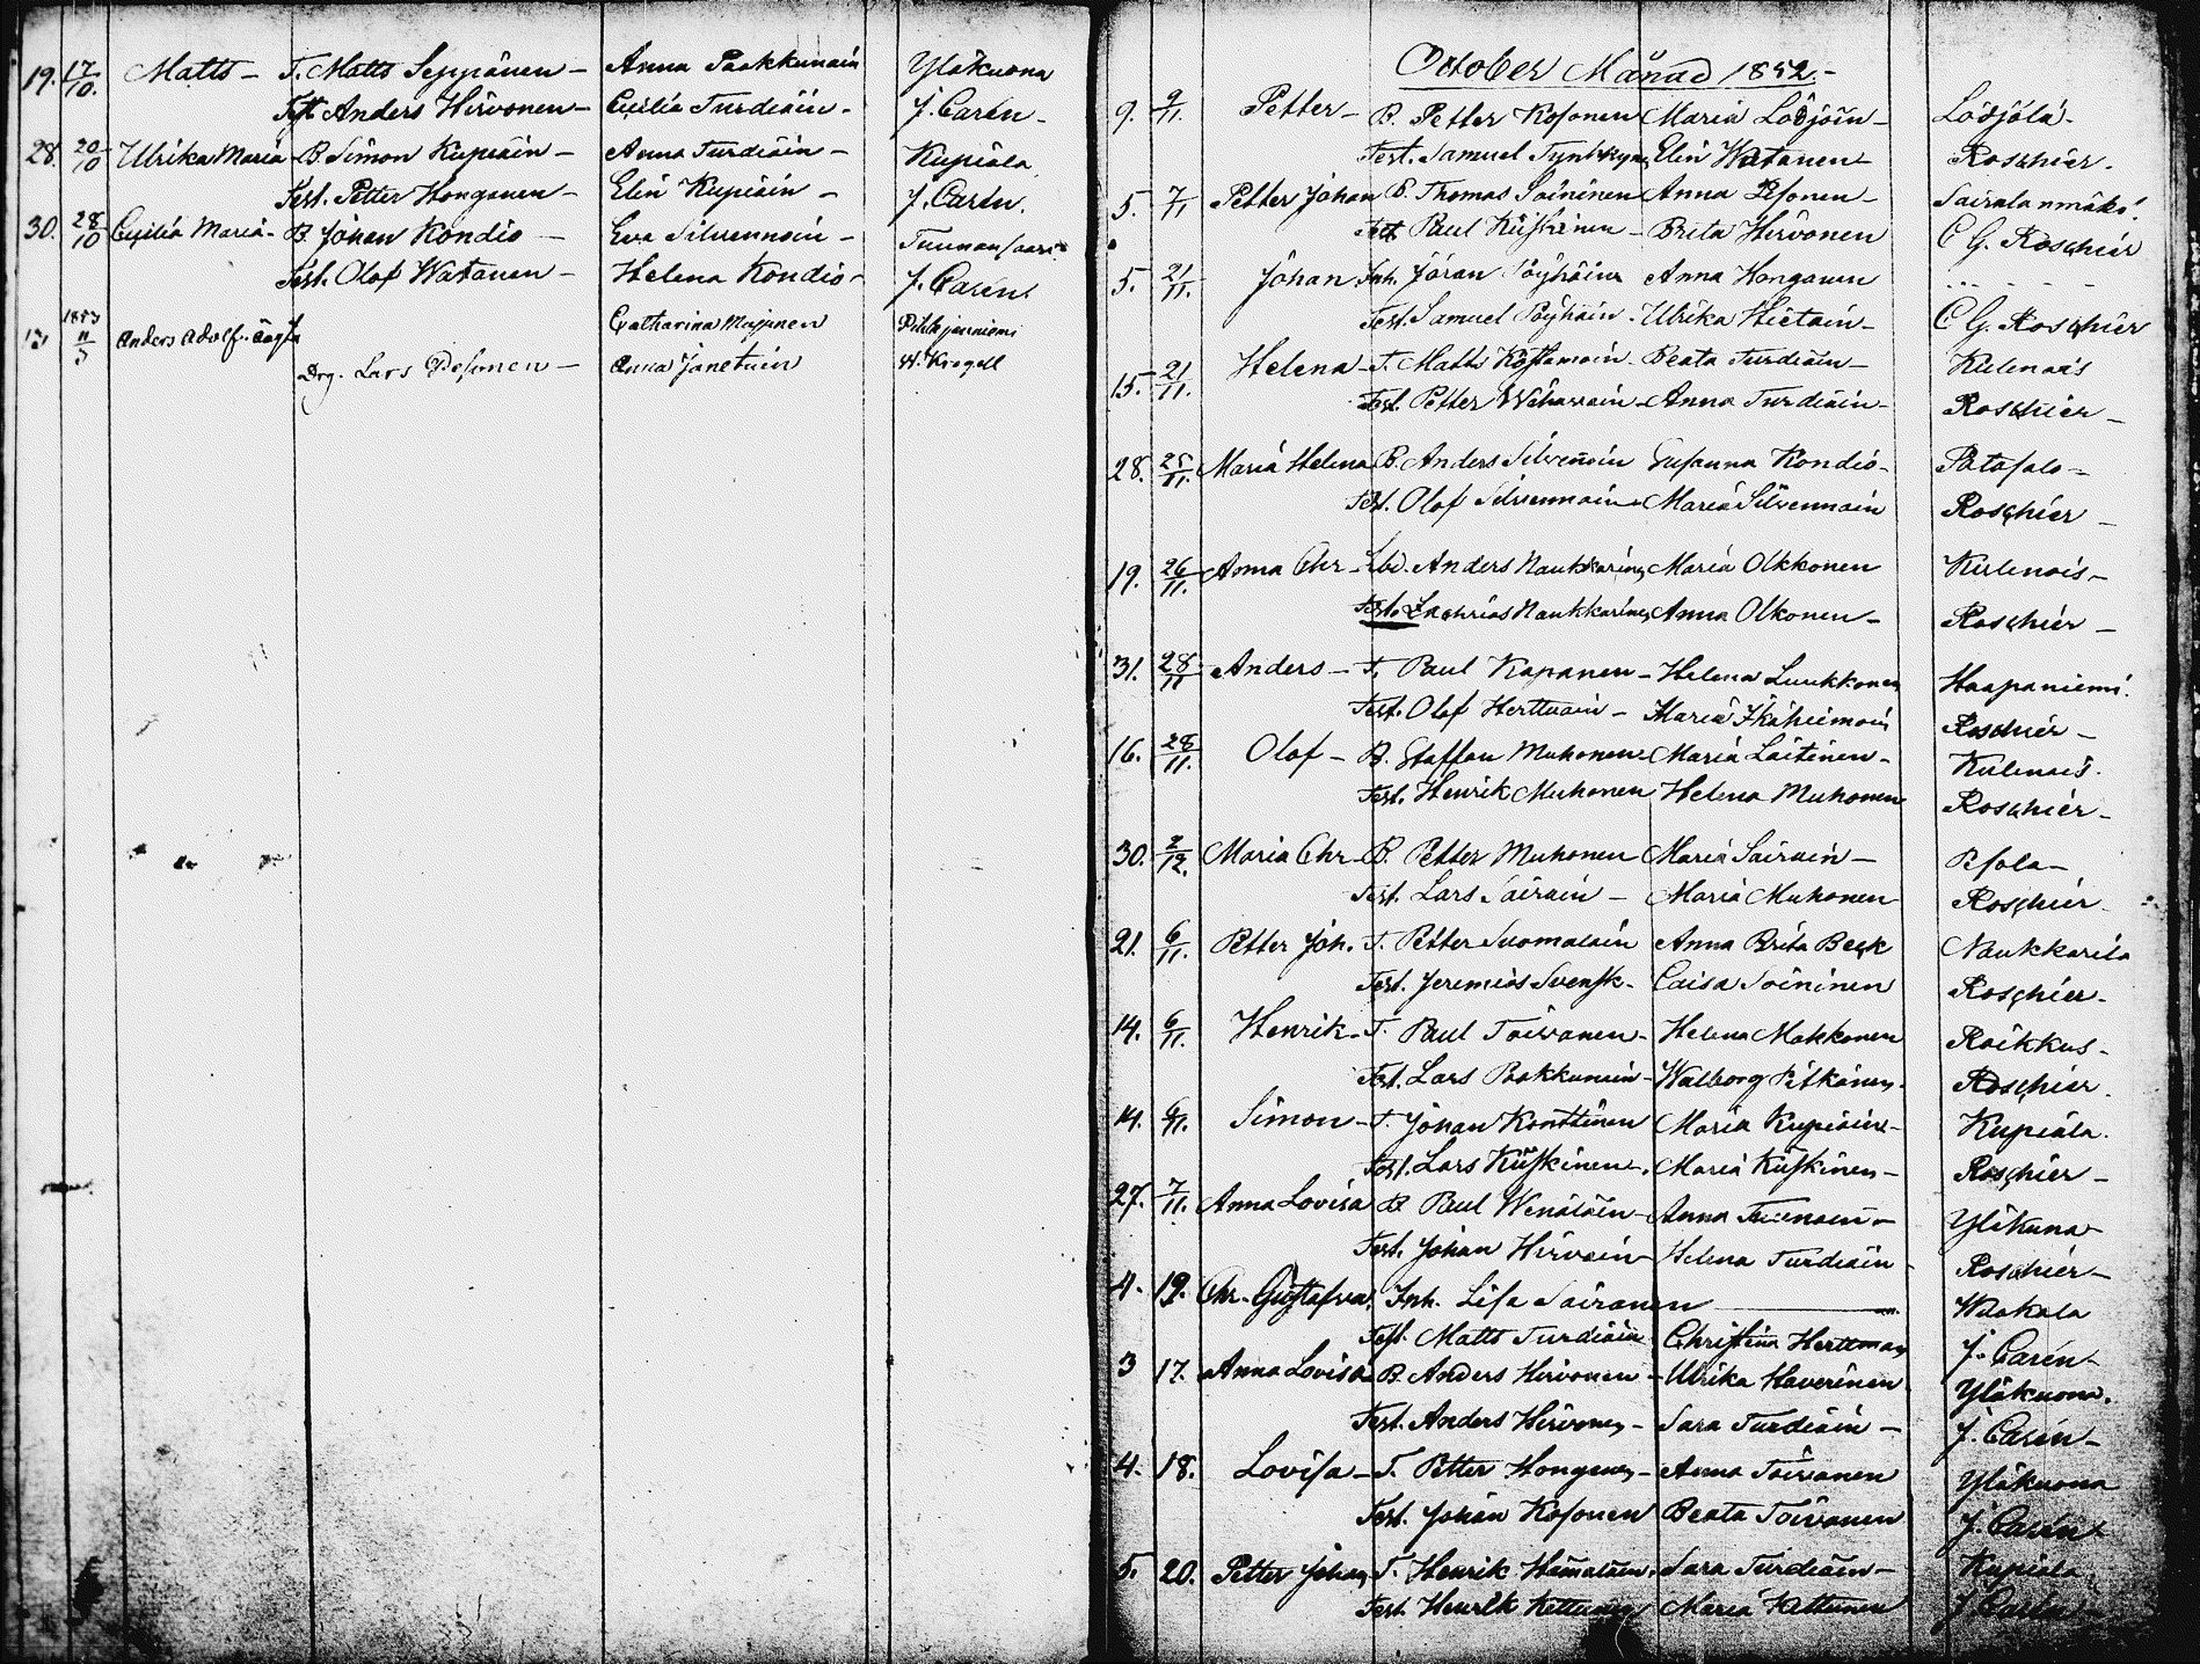 19. 17/10. Matts – T. Matts Seppänen – Anna Paakkunain Yläkuona
Test Anders Hirvonen – Cecilia Turdiäin – J. Carén –
28. 20/10 Ulrika Maria – B. Simon Kupiäin – Anna Turdiäin – Kupiala
Test. Petter Honganen – Elin Kupiäin – J. Carén.
30. 28/10 Cecilia Maria – B. Johan Kondio – Eva Silvennoin – Tuunansaari
Test. Olof Watanen – Helena Kondio – J. Carén.
1853 11/3 Anders Adolf. Catharina Mujunen
Drg. Lars Pesonen – Anna Janetuin W. Krogell
October Månad 1852. –
9. 9/11. Petter – B. Petter Kosonen Maria Lödjöin – Lödjölä –
Test. Samuel Elin Watanen – Roschier.
5. 7/11 Petter Johan B. Thomas Soininen Anna Pesonen – Sairalanmäki.
Test Paul Kiiskinen – Brita Hirvonen C G. Roschier
5. 21/11. Johan Inh. Jöran Pöyhöin Anna Honganen . . . - - -
Test. Samuel Pöyhöin. Ulrika Hietain – C G. Roschier
15. 21/11. Helena – T. Matts Beata Turdiäin – Kulenois
Test. Petter Anna Turdiäin – Roschier –
28. 25/11. Maria Helena B. Anders Silvenoin Susanna Kondio – Patasalo –
Test. Olof Silvennoin – Maria Silvennoin Roschier –
19. 26/11. Anna Chr – Lbd. Anders Naukkarinen Maria Olkkonen Kulenois –
Test. Zachrias Naukkarinen Anna Olkonen – Roschier –
31. 28/11 Anders – T. Paul Kapanen – Helena Luukkonen Haapaniemi.
Test. Olof Herttuain – Maria Ikäheimoin Roschier –
16. 28/11. Olof – B. Staffan Muhonen – Maria Laitinen – Kulenois.
Test. Henrik Muhonen Helena Muhonen Roschier –
30. 2/12. Maria Chr – B. Petter Muhonen Maria Sairain – Pesola –
Test. Lars Sairain – Maria Muhonen Roschier
21. 6/11. Petter Joh. T. Petter Suomalain Anna Brita Beck Naukkarila
Test. Jeremias Svensk – Caisa Soininen Roschier –
14. 6/11. Henrik – T. Paul Toivanen – Helena Makkonen Raikkus –
Test. Lars Paakkunain – Walborg Pitkänen. Roschier.
14. 6/11. Simon – T. Johan Konttinen Maria Kupiäin – Kupiala.
Test. Lars Kiiskinen –. Maria Kiiskinen – Roschier –
27. 7/11. Anna Lovisa B Paul Wenäläin – Anna Tuunain – Yläkuna –
Test. Johan Hirvoin – Helena Turdiäin Roschier –
4. 19. Chr. Gustafva. Inh. Lisa Sairanen Waakala
Test. Matts Turdiäin Christina Herttuan J. Carén –
3 17. Anna Lovisa B. Anders Hirvonen – Ulrika Haverinen Yläkuona.
Test. Anders Hirvonen – Sara Turdiäin – J. Carén –
4. 18. Lovisa – T. Petter Honganen – Anna Toivanen Yläkuona
Test. Johan Kosonen Beata Toivanen J. Carén
5. 20. Petter Johan T. Henrik Hämäläin. Sara Turdiäin – Kupiala
Test. Henrik Kettunen Maria Kettunen J. Carén